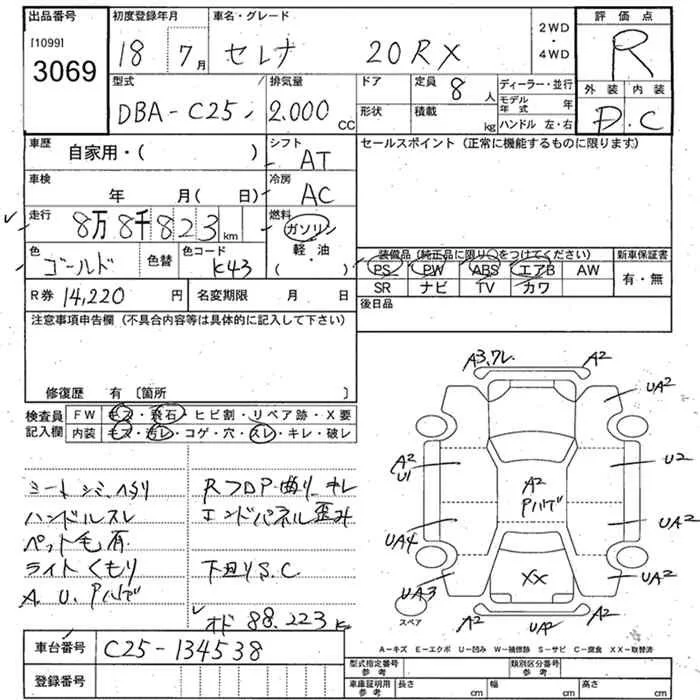 出品番号
[1099]
3069
初度登録年月
18 7月
車名・グレード
セレナ 20RX
2WD
・
4WD
評価点
R
外装 内装
D. C
型式
DBA-C25
排気量
2.000 CC
ドア
形状
定員 8 人
積載 kg
ディーラー・並行
モデル年式 年
ハンドル 左・右
車歴
自家用・( )
シフト
AT
セールスポイント (正常に機能するものに限ります)
車検
年 月( 日)
冷房
AC
走行
8万8千823 km
燃料
ガソリン
軽・油
( )
色
ゴールド
色替
色コード
K43
装備品 (純正品に限り○をつけてください)
PS PW ABS エアB AW
SR ナビ TV カワ
新車保証書
有・無
R券 14,220 円
名変期限 月 日
後日品
注意事項申告欄 (不具合内容等は具体的に記入して下さい)
修復歴 有 〔箇所 〕
検査員
記入欄
FW キズ・飛石・ヒビ割・リペア跡・X要
内装 キズ・汚レ・コゲ・穴・スレ・キレ・破レ
シートシミ、ヘタリ
ハンドルスレ
ペット毛有
ライトくもり
A. U. Pハゲ
RフロP・曲り、キレ
エンドパネル歪み
下廻りS.C
オド 88.223 K
A3.ワレ A2
UA2
A2
U1
U2
A2
Pハゲ
UA4
UA2
XX
UA3
UA2
A2 UA2 A2
スペア
A－キズ E－エクボ U－凹み W－補修跡 S－サビ C－腐食 XX－取替済
車台番号 C25-134538
登録番号
型式指定番号
参考
類別区分番号
参考
車庫証明用
参考
長さ cm 幅 cm 高さ cm